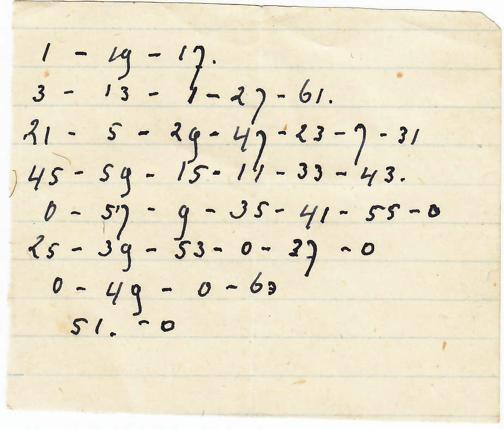 1 - 19 - 17.
3 - 13 - 1 - 27 - 61.
21 - 5 - 29 - 47 - 23 - 7 - 31
45 - 59 - 15 - 11 - 33 - 43.
0 - 57 - 9 - 35 - 41 - 55 - 0
25 - 39 - 53 - 0 - 37 - 0
0 - 49 - 0 - 63
51. - 0